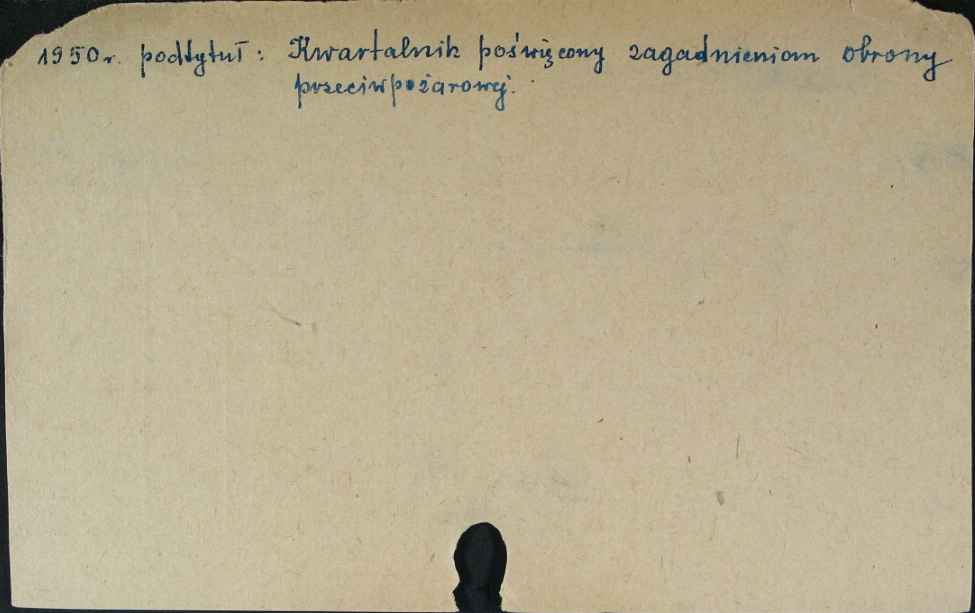 1950r. podtytuł: Kwartalnik poświęcony zagadnieniom obrony
przeciwpożarowej.